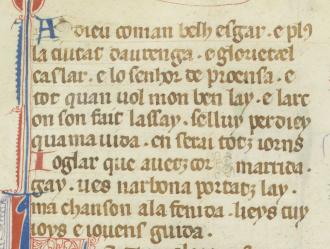 A dieu coman belh esgar · e pl9
la ciutat daurenga · e glorietael
caslar · e lo senhor de proensa · e
tot quan uol mon ben lay · e larc
on son fait lassay · sellui perdiey
qua ma uida · en serai totz iorns
Ioglar que auetz cor marrida ·
gay · ues narbona portatz lay ·
ma chanson ala fenida · lieys cuy
ioys e iouens guida ·